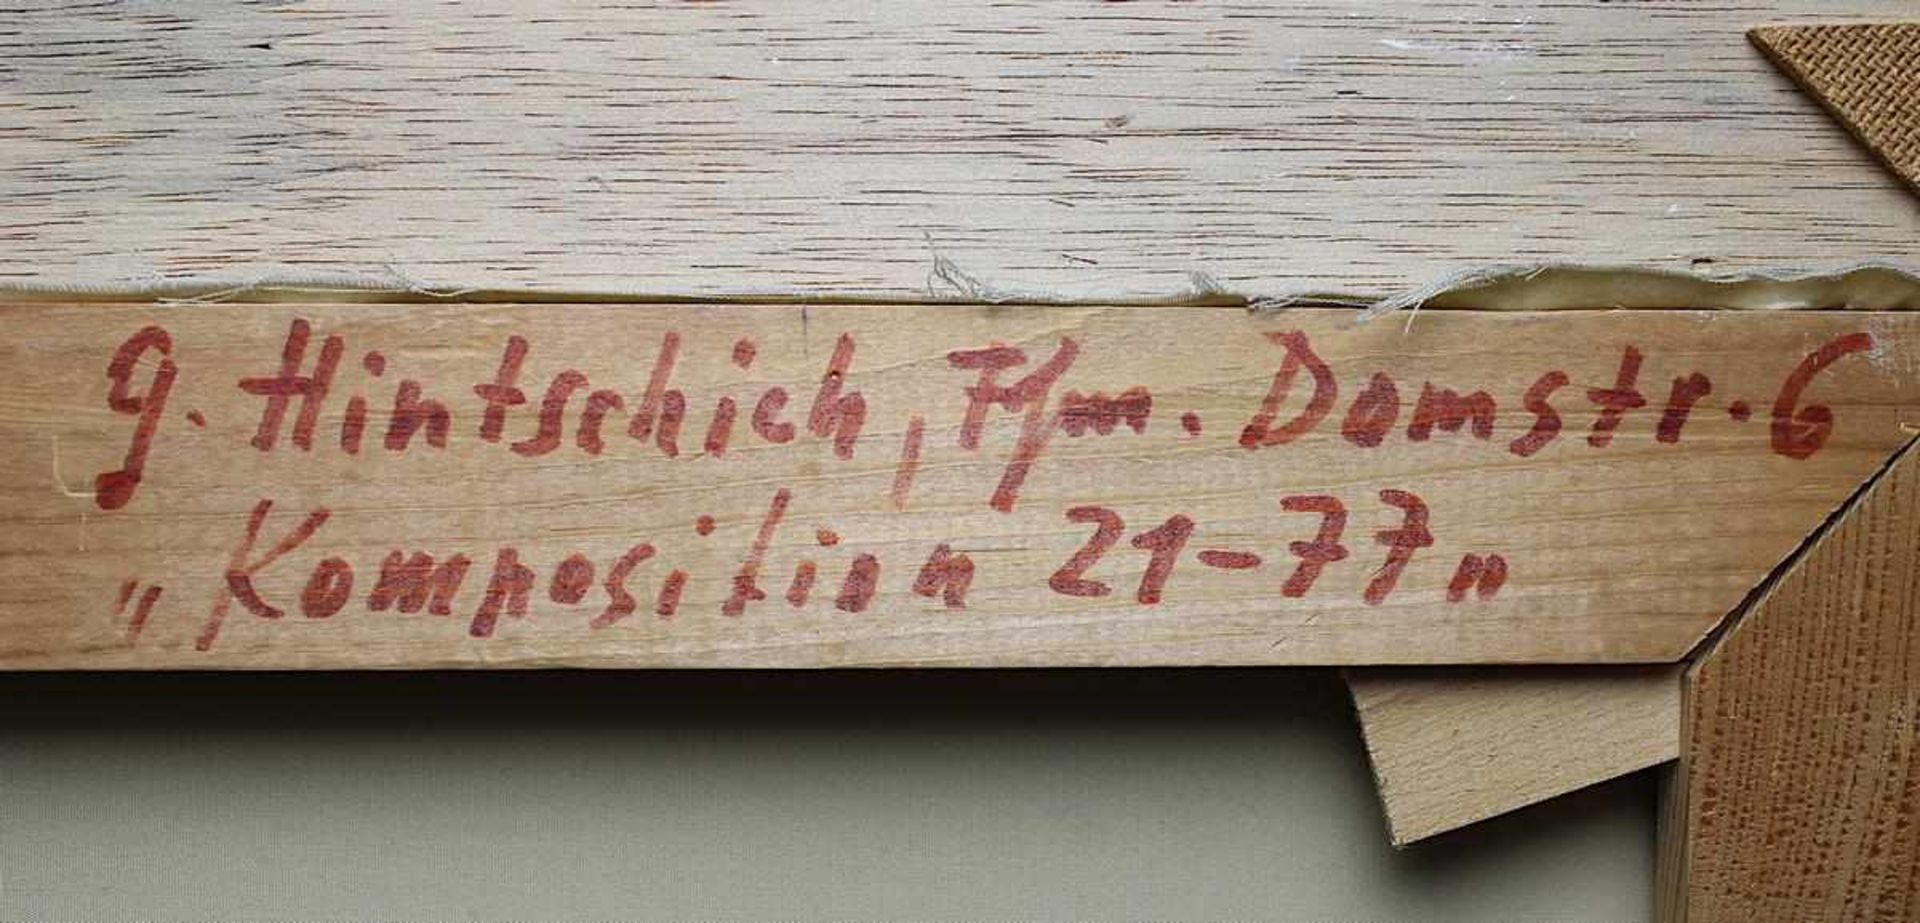 G. Hintschich, F/m. Domstr. 6
„Komposition 21-77"